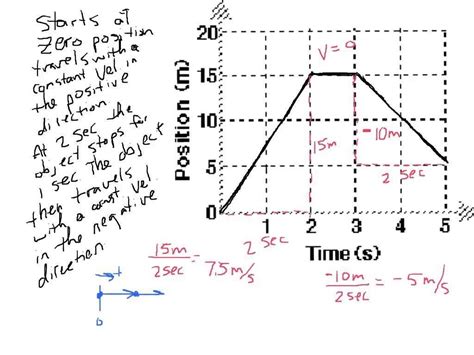 Starts at
Zero position
travels with a
constant Vel in
the positive
direction.
At 2 sec the
object stops for
1 sec The object
then travels
with a const vel.
in the negative
direction
20
15
10
5
0
Position (m)
V = 0
15m
-10m
2 sec
1 2 3 4 5
Time (s)
2 sec
15m
2sec
= 7.5 m/s
-10m
2 sec
= -5 m/s
+
0